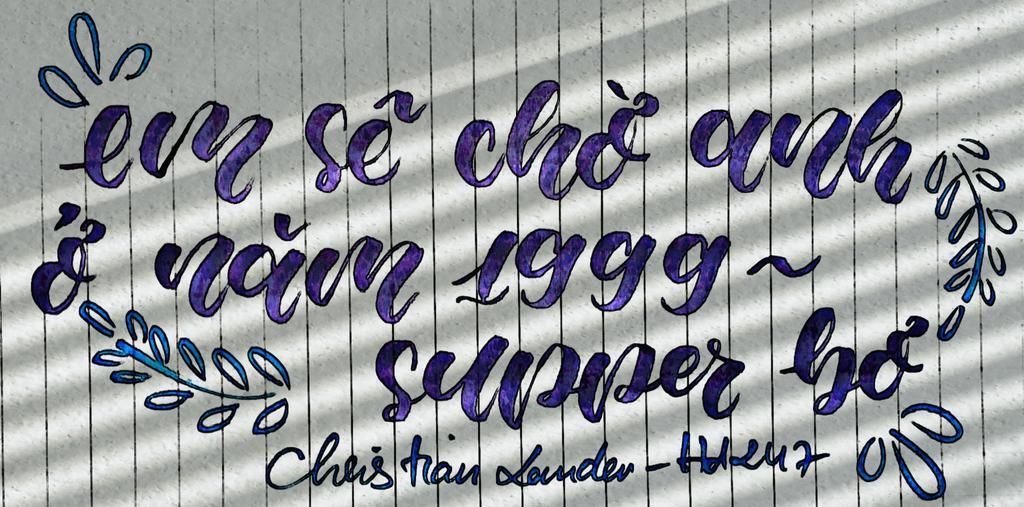 em sẽ chờ anh
ở năm 1999 ~
supper bơ
Christian Lander -